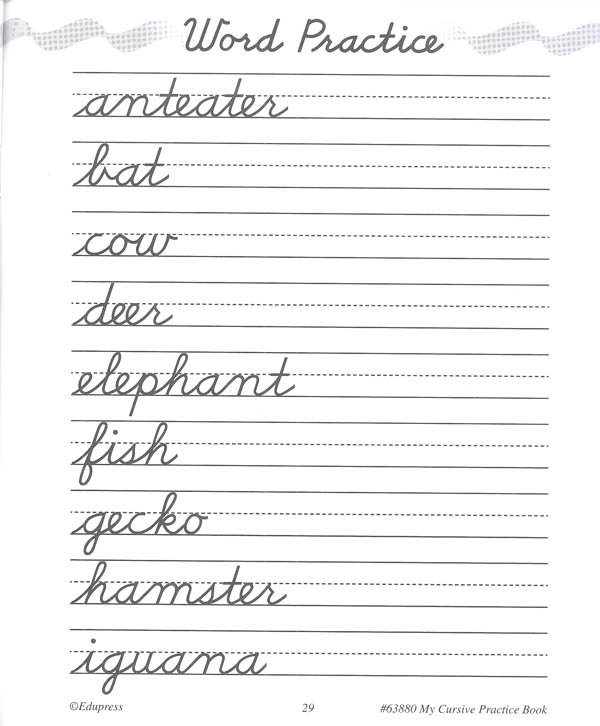 Word Practice
anteater
bat
cow
deer
elephant
fish
gecko
hamster
iguana
©Edupress 29 #63880 My Cursive Practice Book